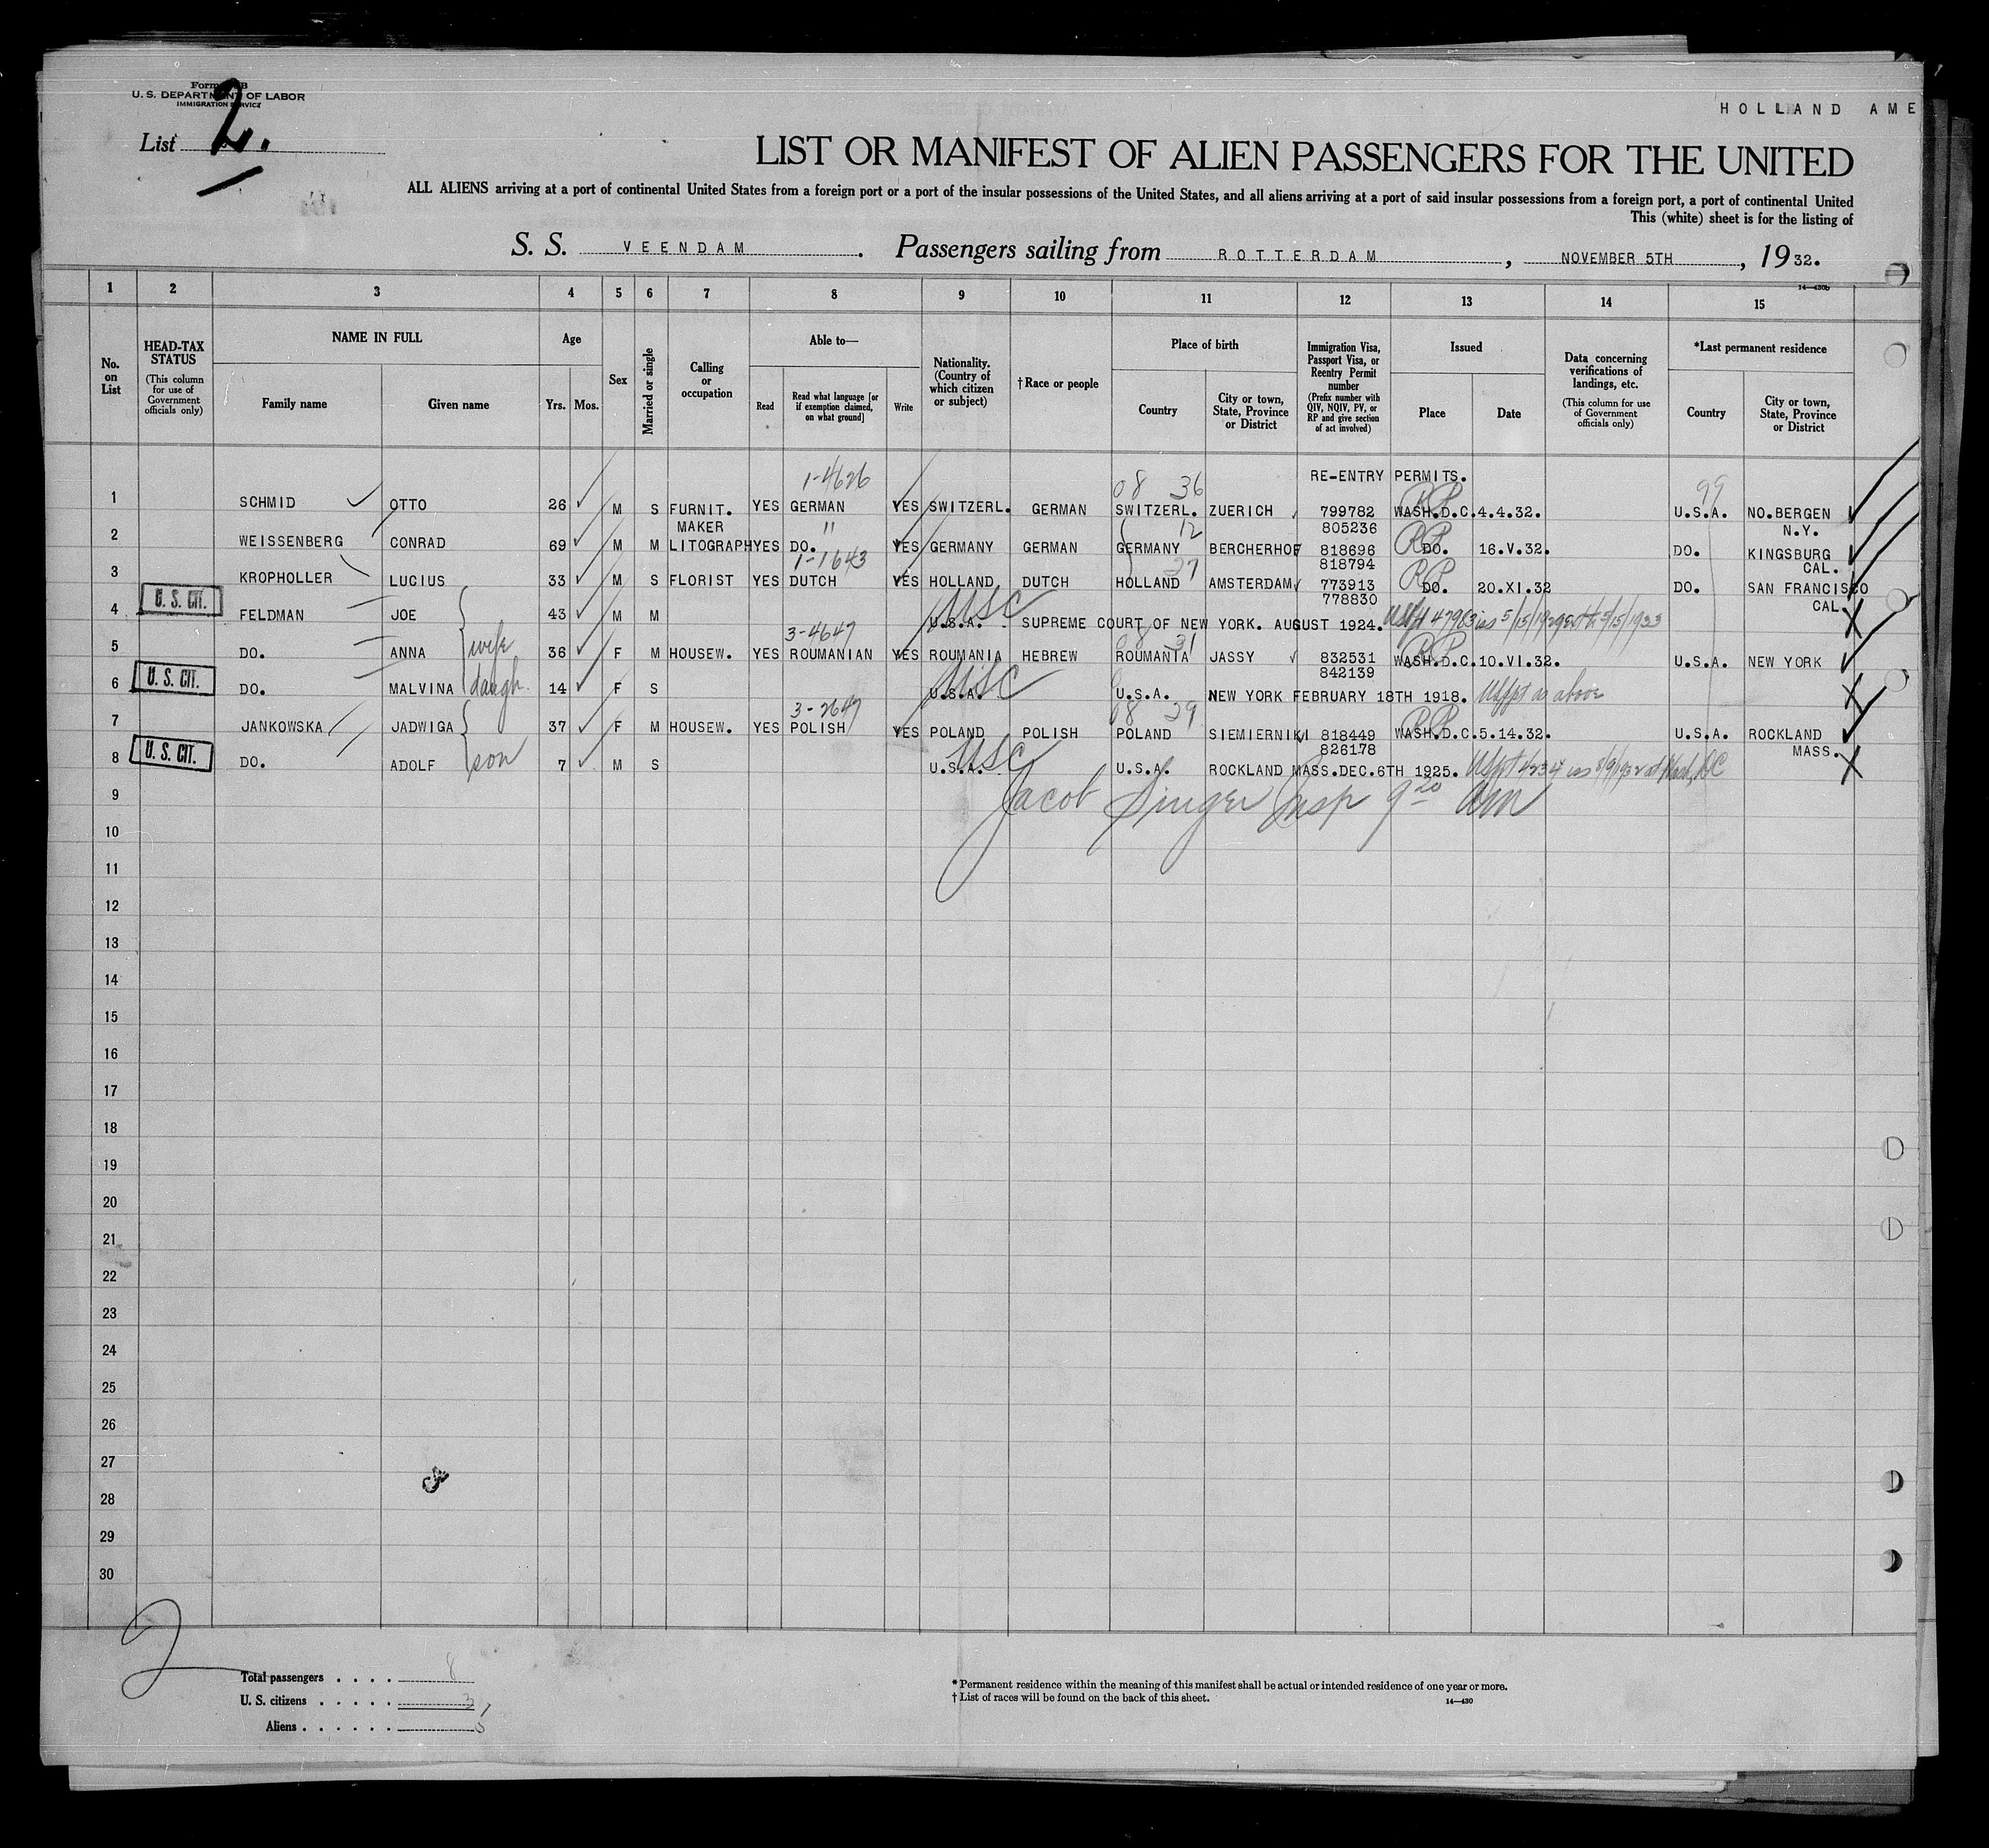 Form B
U. S. DEPARTMENT OF LABOR
IMMIGRATION SERVICE
List 2.
HOLLAND AME
LIST OR MANIFEST OF ALIEN PASSENGERS FOR THE UNITED
ALL ALIENS arriving at a port of continental United States from a foreign port or a port of the insular possessions of the United States, and all aliens arriving at a port of said insular possessions from a foreign port, a port of continental United
This (white) sheet is for the listing of
S. S. VEENDAM. Passengers sailing from ROTTERDAM, NOVEMBER 5TH, 1932.
14—430b
1 2 3 4 5 6 7 8 9 10 11 12 13 14 15
No. on List
HEAD-TAX STATUS (This column for use of Government officials only)
NAME IN FULL
Family name Given name
Age
Yrs. Mos.
Sex
Married or single
Calling or occupation
Able to—
Read
Read what language [or if exemption claimed, on what ground]
Write
Nationality. (Country of which citizen or subject)
† Race or people
Place of birth
Country
City or town, State, Province or District
Immigration Visa, Passport Visa, or Reentry Permit number (Prefix number with QIV, NQIV, PV, or RP and give section of act involved)
Issued
Place Date
Data concerning verifications of landings, etc. (This column for use of Government officials only)
*Last permanent residence
Country
City or town, State, Province or District
RE-ENTRY PERMITS.
1-4626 08 36 RP 99
1 SCHMID OTTO 26 M S FURNIT. YES GERMAN YES SWITZERL. GERMAN SWITZERL. ZUERICH 799782 WASH.D.C. 4.4.32. U.S.A. NO.BERGEN
MAKER " 12 805236 N.Y.
2 WEISSENBERG CONRAD 69 M M LITOGRAPH YES DO. YES GERMANY GERMAN GERMANY BERCHERHOF 818696 RP DO. 16.V.32. DO. KINGSBURG
1-1643 27 818794 CAL.
3 KROPHOLLER LUCIUS 33 M S FLORIST YES DUTCH YES HOLLAND DUTCH HOLLAND AMSTERDAM 773913 RP DO. 20.XI.32 DO. SAN FRANCISCO
778830 CAL
U. S. CIT.
4 FELDMAN JOE 43 M M USC U.S.A. SUPREME COURT OF NEW YORK. AUGUST 1924. 5/15/1933
3-4647 08 31 RP
5 DO. ANNA wife 36 F M HOUSEW. YES ROUMANIAN YES ROUMANIA HEBREW ROUMANIA JASSY 832531 WASH.D.C. 10.VI.32. U.S.A. NEW YORK
842139
U. S. CIT.
6 DO. MALVINA daugh. 14 F S USC U.S.A. U.S.A. NEW YORK FEBRUARY 18TH 1918. USppt as above
3-2647 08 29 RP
7 JANKOWSKA JADWIGA 37 F M HOUSEW. YES POLISH YES POLAND POLISH POLAND SIEMIERNIKI 818449 WASH.D.C. 5.14.32. U.S.A. ROCKLAND
826178 MASS.
U. S. CIT.
8 DO. ADOLF son 7 M S USC U.S.A. U.S.A. ROCKLAND MASS.DEC.6TH 1925. at Wash, DC
9 Jacob Singer Insp 9 20 AM
10
11
12
13
14
15
16
17
18
19
20
21
22
23
24
25
26
27
28
29
30
2
Total passengers . . . . 8
U. S. citizens . . . . . 3
Aliens . . . . . . 5
* Permanent residence within the meaning of this manifest shall be actual or intended residence of one year or more.
† List of races will be found on the back of this sheet.
14—430